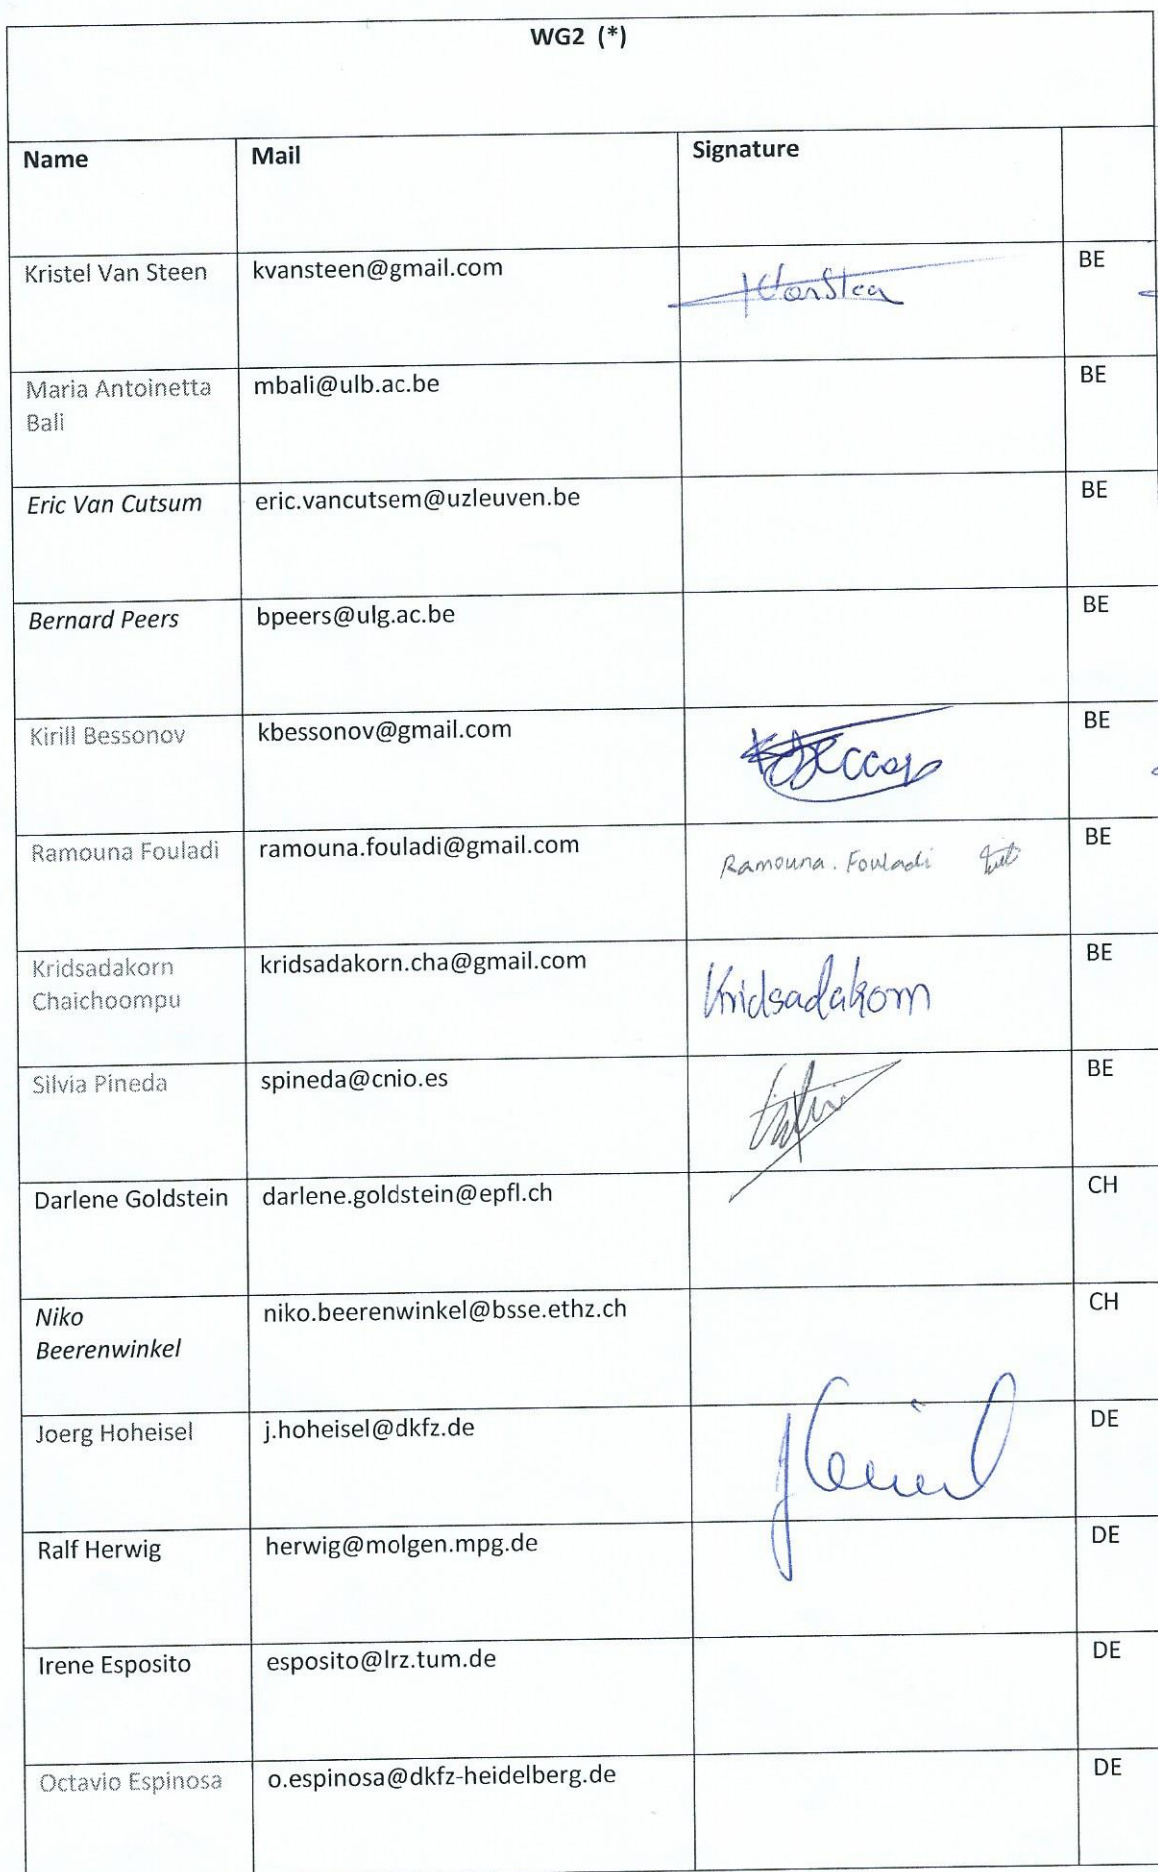 WG2 (*)
Name Mail Signature
Kristel Van Steen kvansteen@gmail.com KVanSteen BE
Maria Antoinetta mbali@ulb.ac.be BE
Bali
Eric Van Cutsum eric.vancutsem@uzleuven.be BE
Bernard Peers bpeers@ulg.ac.be BE
Kirill Bessonov kbessonov@gmail.com BE
Ramouna Fouladi ramouna.fouladi@gmail.com Ramouna. Fouladi BE
Kridsadakorn kridsadakorn.cha@gmail.com Kridsadakorn BE
Chaichoompu
Silvia Pineda spineda@cnio.es BE
Darlene Goldstein darlene.goldstein@epfl.ch CH
Niko niko.beerenwinkel@bsse.ethz.ch CH
Beerenwinkel
Joerg Hoheisel j.hoheisel@dkfz.de DE
Ralf Herwig herwig@molgen.mpg.de DE
Irene Esposito esposito@lrz.tum.de DE
Octavio Espinosa o.espinosa@dkfz-heidelberg.de DE